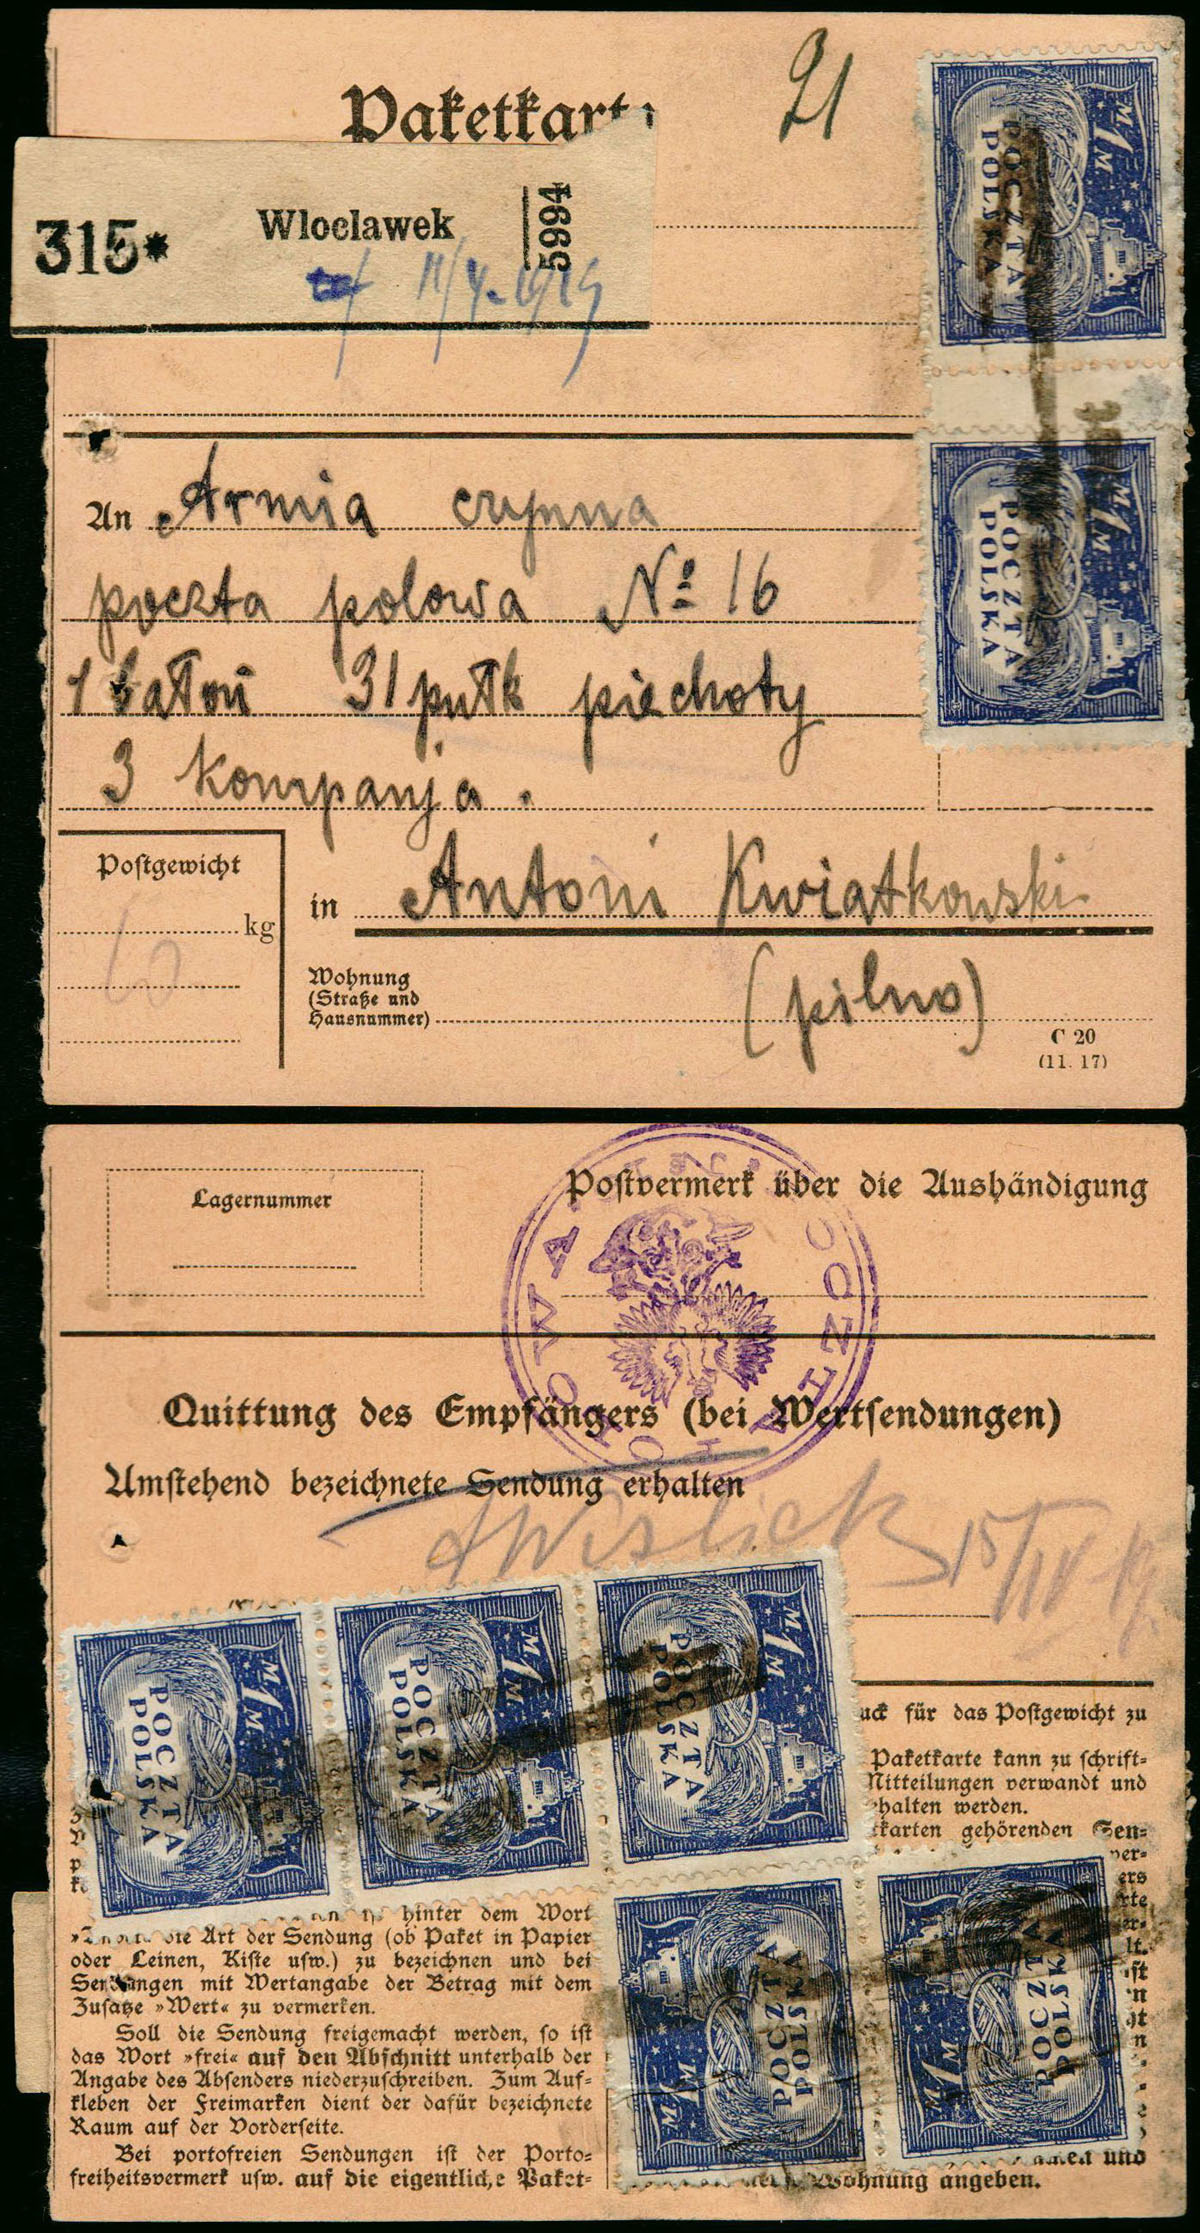 Paketkarte
21
315*
Wloclawek
5994
11/4. 1919
M 1 M
POCZTA
POLSKA
M 1 M
POCZTA
POLSKA
An Armia czynna
poczta polowa № 16
1 bałon 31 pułk piechoty
3 kompanja.
Postgewicht
10
kg
in Antoni Kwiatkowski
Wohnung
(Straße und
Hausnummer)
(pilno)
C 20
(11. 17)
Lagernummer
Postvermerk über die Aushändigung
POCZTA POLOWA
Quittung des Empfängers (bei Wertsendungen)
Umstehend bezeichnete Sendung erhalten
15/IV 19.
M 1 M
POCZTA
POLSKA
M 1 M
POCZTA
POLSKA
M 1 M
POCZTA
POLSKA
M 1 M
POCZTA
POLSKA
M 1 M
POCZTA
POLSKA
hinter dem Wort
die Art der Sendung (ob Paket in Papier
oder Leinen, Kiste usw.) zu bezeichnen und bei
Sendungen mit Wertangabe der Betrag mit dem
Zusatze »Wert« zu vermerken.
Soll die Sendung freigemacht werden, so ist
das Wort »frei« auf den Abschnitt unterhalb der
Angabe des Absenders niederzuschreiben. Zum Auf-
kleben der Freimarken dient der dafür bezeichnete
Raum auf der Vorderseite.
Bei portofreien Sendungen ist der Porto-
freiheitsvermerk usw. auf die eigentliche Paket-
uck für das Postgewicht zu
Paketkarte kann zu schrift-
Mitteilungen verwandt und
ehalten werden.
tkarten gehörenden Sen-
ver-
ers
rte
er-
lt.
ist
und
Wohnung angeben.